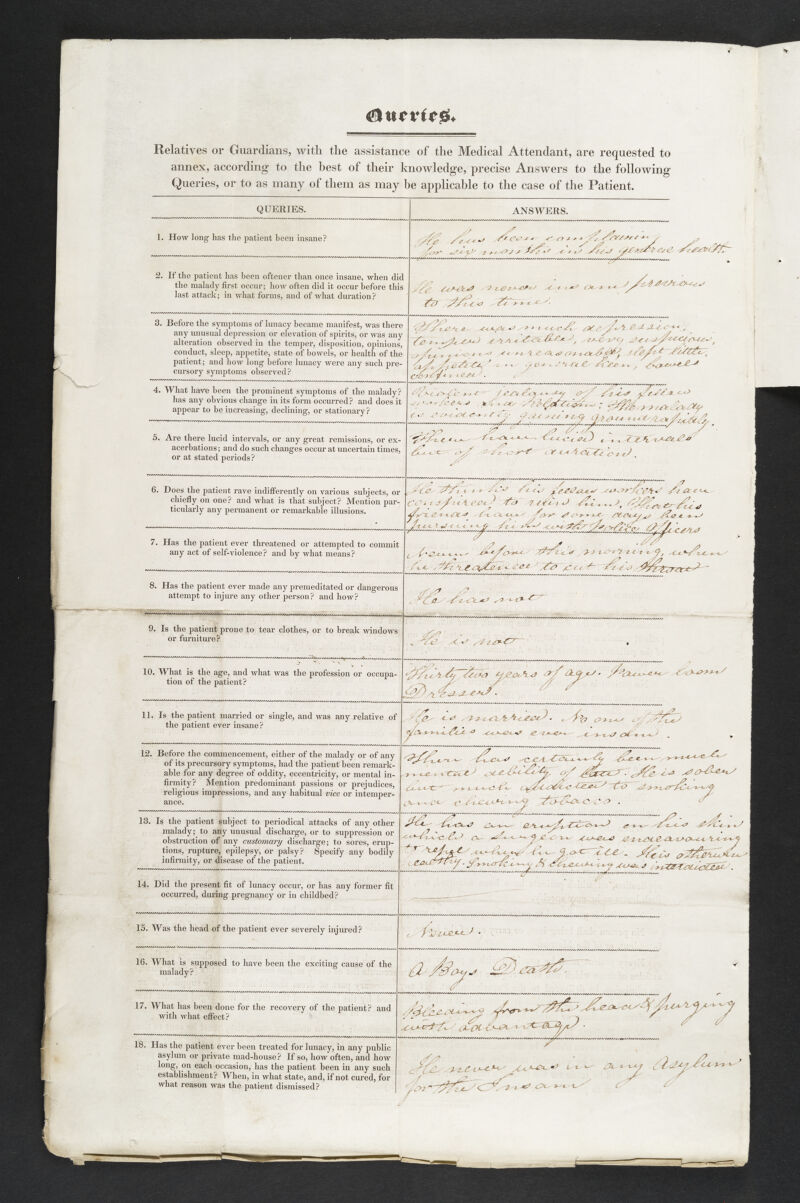 Queries.
Relatives or Guardians, with the assistance of the Medical Attendant, are requested to
annex, according to the best of their knowledge, precise Answers to the following
Queries, or to as many of them as may be applicable to the case of the Patient.
QUERIES.
ANSWERS.
1. How long has the patient been insane?
He has been complaining
for six months in his general health.
2. If the patient has been oftener than once insane, when did
the malady first occur; how often did it occur before this
last attack; in what forms, and of what duration?
He was never insane previous
to this time.
3. Before the symptoms of lunacy became manifest, was there
any unusual depression or elevation of spirits, or was any
alteration observed in the temper, disposition, opinions,
conduct, sleep, appetite, state of bowels, or health of the
patient; and how long before lunacy were any such pre-
cursory symptoms observed?
There was much depression,
temper irritable, very suspicious,
opinions unreasonable, slept little,
appetite in general keen, bowels
confined.
4. What have been the prominent symptoms of the malady?
has any obvious change in its form occurred? and does it
appear to be increasing, declining, or stationary?
Violent jealousy of his fellow
workers and Relations. The malady
is evidently gaining ground rapidly.
5. Are there lucid intervals, or any great remissions, or ex-
acerbations; and do such changes occur at uncertain times,
or at stated periods?
There have lucid intervals
but of short duration.
6. Does the patient rave indifferently on various subjects, or
chiefly on one? and what is that subject? Mention par-
ticularly any permanent or remarkable illusions.
He thinks his fellow workers have
conspired to ruin him. That his
friends have for some days been
pursuing him with Police Officers
7. Has the patient ever threatened or attempted to commit
any act of self-violence? and by what means?
Never before this morning, when
he threatened to cut his throat
8. Has the patient ever made any premeditated or dangerous
attempt to injure any other person? and how?
He has not
9. Is the patient prone to tear clothes, or to break windows
or furniture?
He is not
10. What is the age, and what was the profession or occupa-
tion of the patient?
Thirty two years of age. Power loom
Dresser.
11. Is the patient married or single, and was any relative of
the patient ever insane?
He is married. No one of the
families was ever insane.
12. Before the commencement, either of the malady or of any
of its precursory symptoms, had the patient been remark-
able for any degree of oddity, eccentricity, or mental in-
firmity? Mention predominant passions or prejudices,
religious impressions, and any habitual vice or intemper-
ance.
There has certainly been much
mental debility of late. He is sober
but much addicted to smoking
and chewing tobacco.
13. Is the patient subject to periodical attacks of any other
malady; to any unusual discharge, or to suppression or
obstruction of any customary discharge; to sores, erup-
tions, rupture, epilepsy, or palsy? Specify any bodily
infirmity, or disease of the patient.
He has an eruption on his skin
which a Surgeon was endeavouring
to repel when he got ill. He is otherwise
healthy. Smoking & chewing was interdicted.
14. Did the present fit of lunacy occur, or has any former fit
occurred, during pregnancy or in childbed?
15. Was the head of the patient ever severely injured?
Never.
16. What is supposed to have been the exciting cause of the
malady?
A Boys Death.
17. What has been done for the recovery of the patient? and
with what effect?
Bleeding from the head & purging
with advantage.
18. Has the patient ever been treated for lunacy, in any public
asylum or private mad-house? If so, how often, and how
long, on each occasion, has the patient been in any such
establishment? When, in what state, and, if not cured, for
what reason was the patient dismissed?
He never was in any Asylum
for the Insane